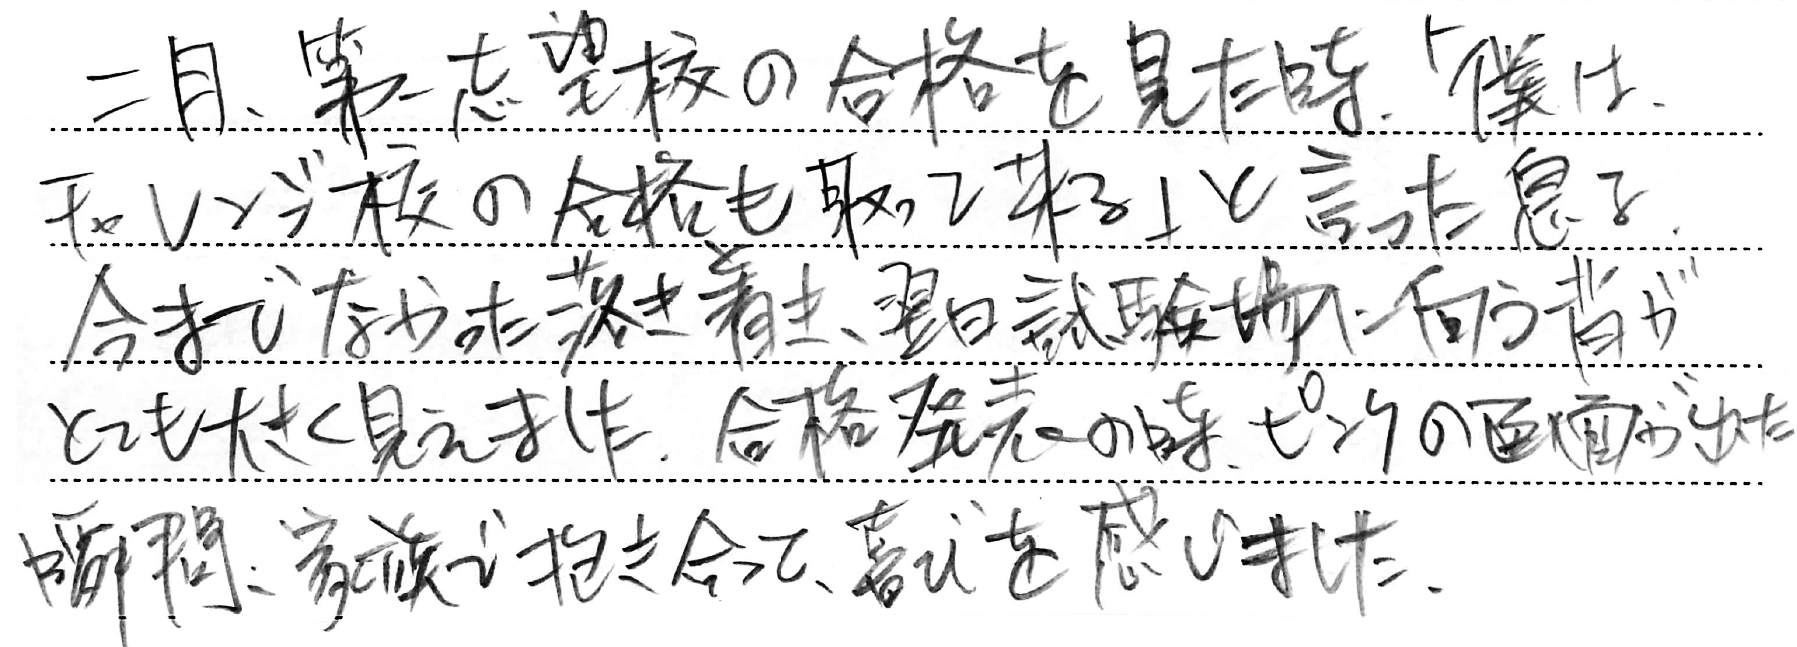 二月、第一志望校の合格を見た時、「僕は、
チャレンジ校の合格も取って来る」と言った息子。
今までなかった落ち着き、翌日試験場に向う背が
とても大きく見えました。合格発表の時、ピンクの画面が出た
瞬間、家族で抱き合って、喜びを感じました。